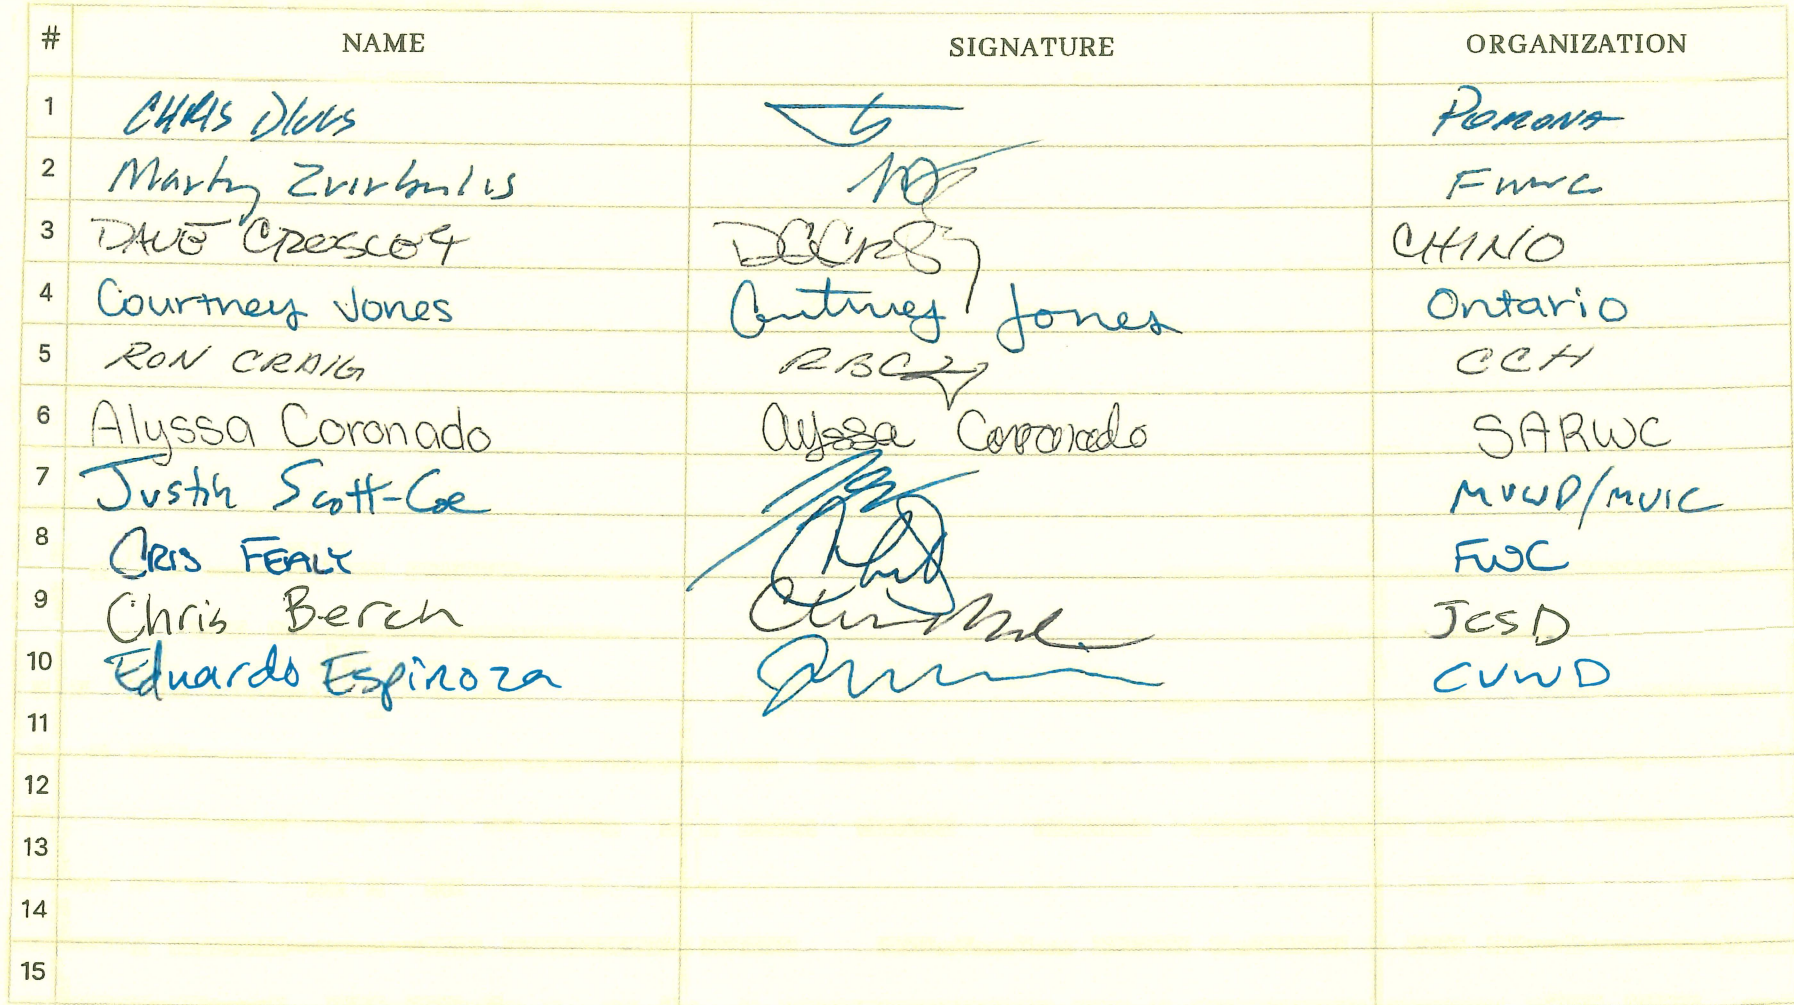 # NAME SIGNATURE ORGANIZATION
1 CHRIS DIGGS POMONA
2 Marty Zvirbulis FWWC
3 DAVE CROSLEY CHINO
4 Courtney Jones Courtney Jones Ontario
5 RON CRAIG RBC CCH
6 Alyssa Coronado Alyssa Coronado SARWC
7 Justin Scott-Coe MVWD/MVIC
8 CRIS FEALY FWC
9 Chris Berch JCSD
10 Eduardo Espinoza CVWD
11
12
13
14
15